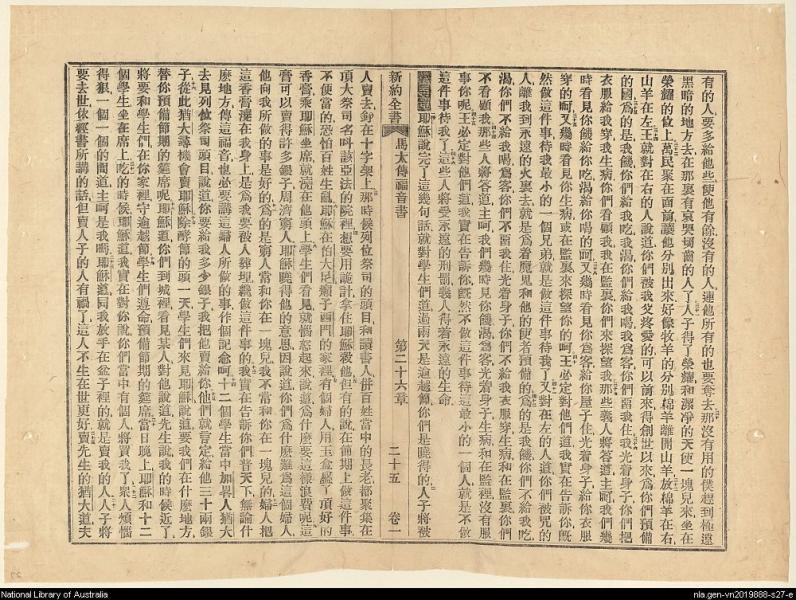 有的人要多給他些使他有餘沒有的人連他所有的也要奪去那沒有用的僕趕到極遠
黑暗的地方去在那裏有哀哭切齒的人了人子得了榮耀和潔淨的天使一塊兒來坐在
榮耀的位上萬民聚在面前讓他分別出來好像牧羊的分別棉羊離開山羊放棉羊在右
山羊在左王就對在右的人說道你們被我父疼愛的可以前來得創世以來為你們預備
的國為的是我饑你們給我吃我渴你們給我喝我為客你們留我住我光着身子你們把
衣服給我穿我生病你們看顧我我在監裏你們來探望我那些義人將答道主呵我們幾
時看見你饑給你吃渴給你喝的呵又幾時看見你為客給你屋子住光着身子給你衣服
穿的呵又幾時看見你生病或在監裏來探望你的呵王必定對他們道我實在告訴你旣
然做這件事待我最小的一個兄弟就是做這件事待我了又對在左的人道你們被咒的
人離我到永遠的火裏去就是為着魔鬼和他的使者預備的為的是我饑你們不給我吃
渴你們不給我喝為客你們不留我住光着身子你們不給我衣服穿生病和在監裏你們
不看顧我那些人將答道主呵我們幾時見你饑渴為客光着身子生病和在監裡沒有服
事你呢王必定對他們道我實在告訴你旣然不做這件事待這最小的一個人就是不做
這件事待我了這些人將受永遠的刑罰義人得着永遠的生命
耶穌說完了這幾句話就對學生們道過兩天是逾越節你們是曉得的人子將被
新約全書 馬太傳福音書 第二十六章 二十五 卷一
人賣去釘在十字架上那時候列位祭司的頭目和讀書人併百姓當中的長老都聚集在
頂大祭司名叫該亞法的院裡想要用詭計拿住耶穌殺他但有的說在節期上做這件事
不便當的恐怕百姓生亂耶穌在伯大尼癩子西門的家裡有個婦人用玉盒盛了頂好的
香膏乘耶穌坐席就澆在他頭上學生們看見就惱怒起來說道為什麼要這樣浪費呢這
膏可以賣得許多銀子周濟窮人耶穌曉得他的意思因說道你們為什麼難為這個婦人
他向我所做的事是好的為的是窮人常和你在一塊兒我不常和你在一塊兒的婦人把
這香膏澆在我身上是為我要被人葬埋纔做這件事的我實在告訴你們普天下無論什
麼地方傳這福音也必要講這婦人所做的事作個記念呵十二個學生當中加畧人猶大
去見列位祭司頭目說道你要給我多少銀子我把他賣給你他們就言定給他三十兩銀
子從此猶大尋機會賣耶穌除酵節的頭一天學生們來見耶穌說道要我們在什麼地方
替你預備節期的筵席呢耶穌道你們到城裡看見某人對他說道先生說我的時候近了
將要和學生們在你家裡守逾越節學生們遵命預備節期的筵席當日晚上耶穌和十二
個學生坐在席上吃的時候耶穌道我實在對你說你們當中有個人將賣我了眾人煩惱
得狠一個一個的問道主呵是我嗎耶穌道同我放手在盆子裡的就是賣我的人人子將
要去世依經書所講的話但賣人子的人有禍了這人不生在世更好賣先生的猶大道夫